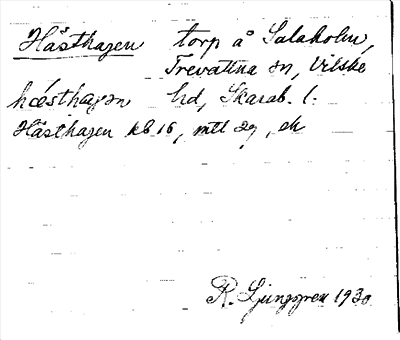 Hästhagen torp å Salaholm,
Trevattna sn, Vilske
hd, Skarab. l.
Hästhagen kb 16, mtl 29, ek
R. Ljunggren 1930